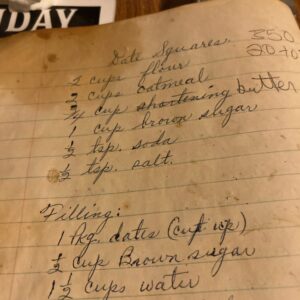 DAY
Date Squares. 350
20 to
2 cups flour
2 cups oatmeal
3/4 cup shortening butter
1 cup brown sugar
1/2 tsp. soda
1/2 tsp. salt.
Filling:
1 Pkg. dates (cut up)
1/2 cup Brown sugar
1 1/2 cups water